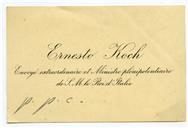 Ernesto Koch
Envoyé extraordinaire et Ministre plénipotentiaire
de S. M. le Roi d'Italie
p. p. c.